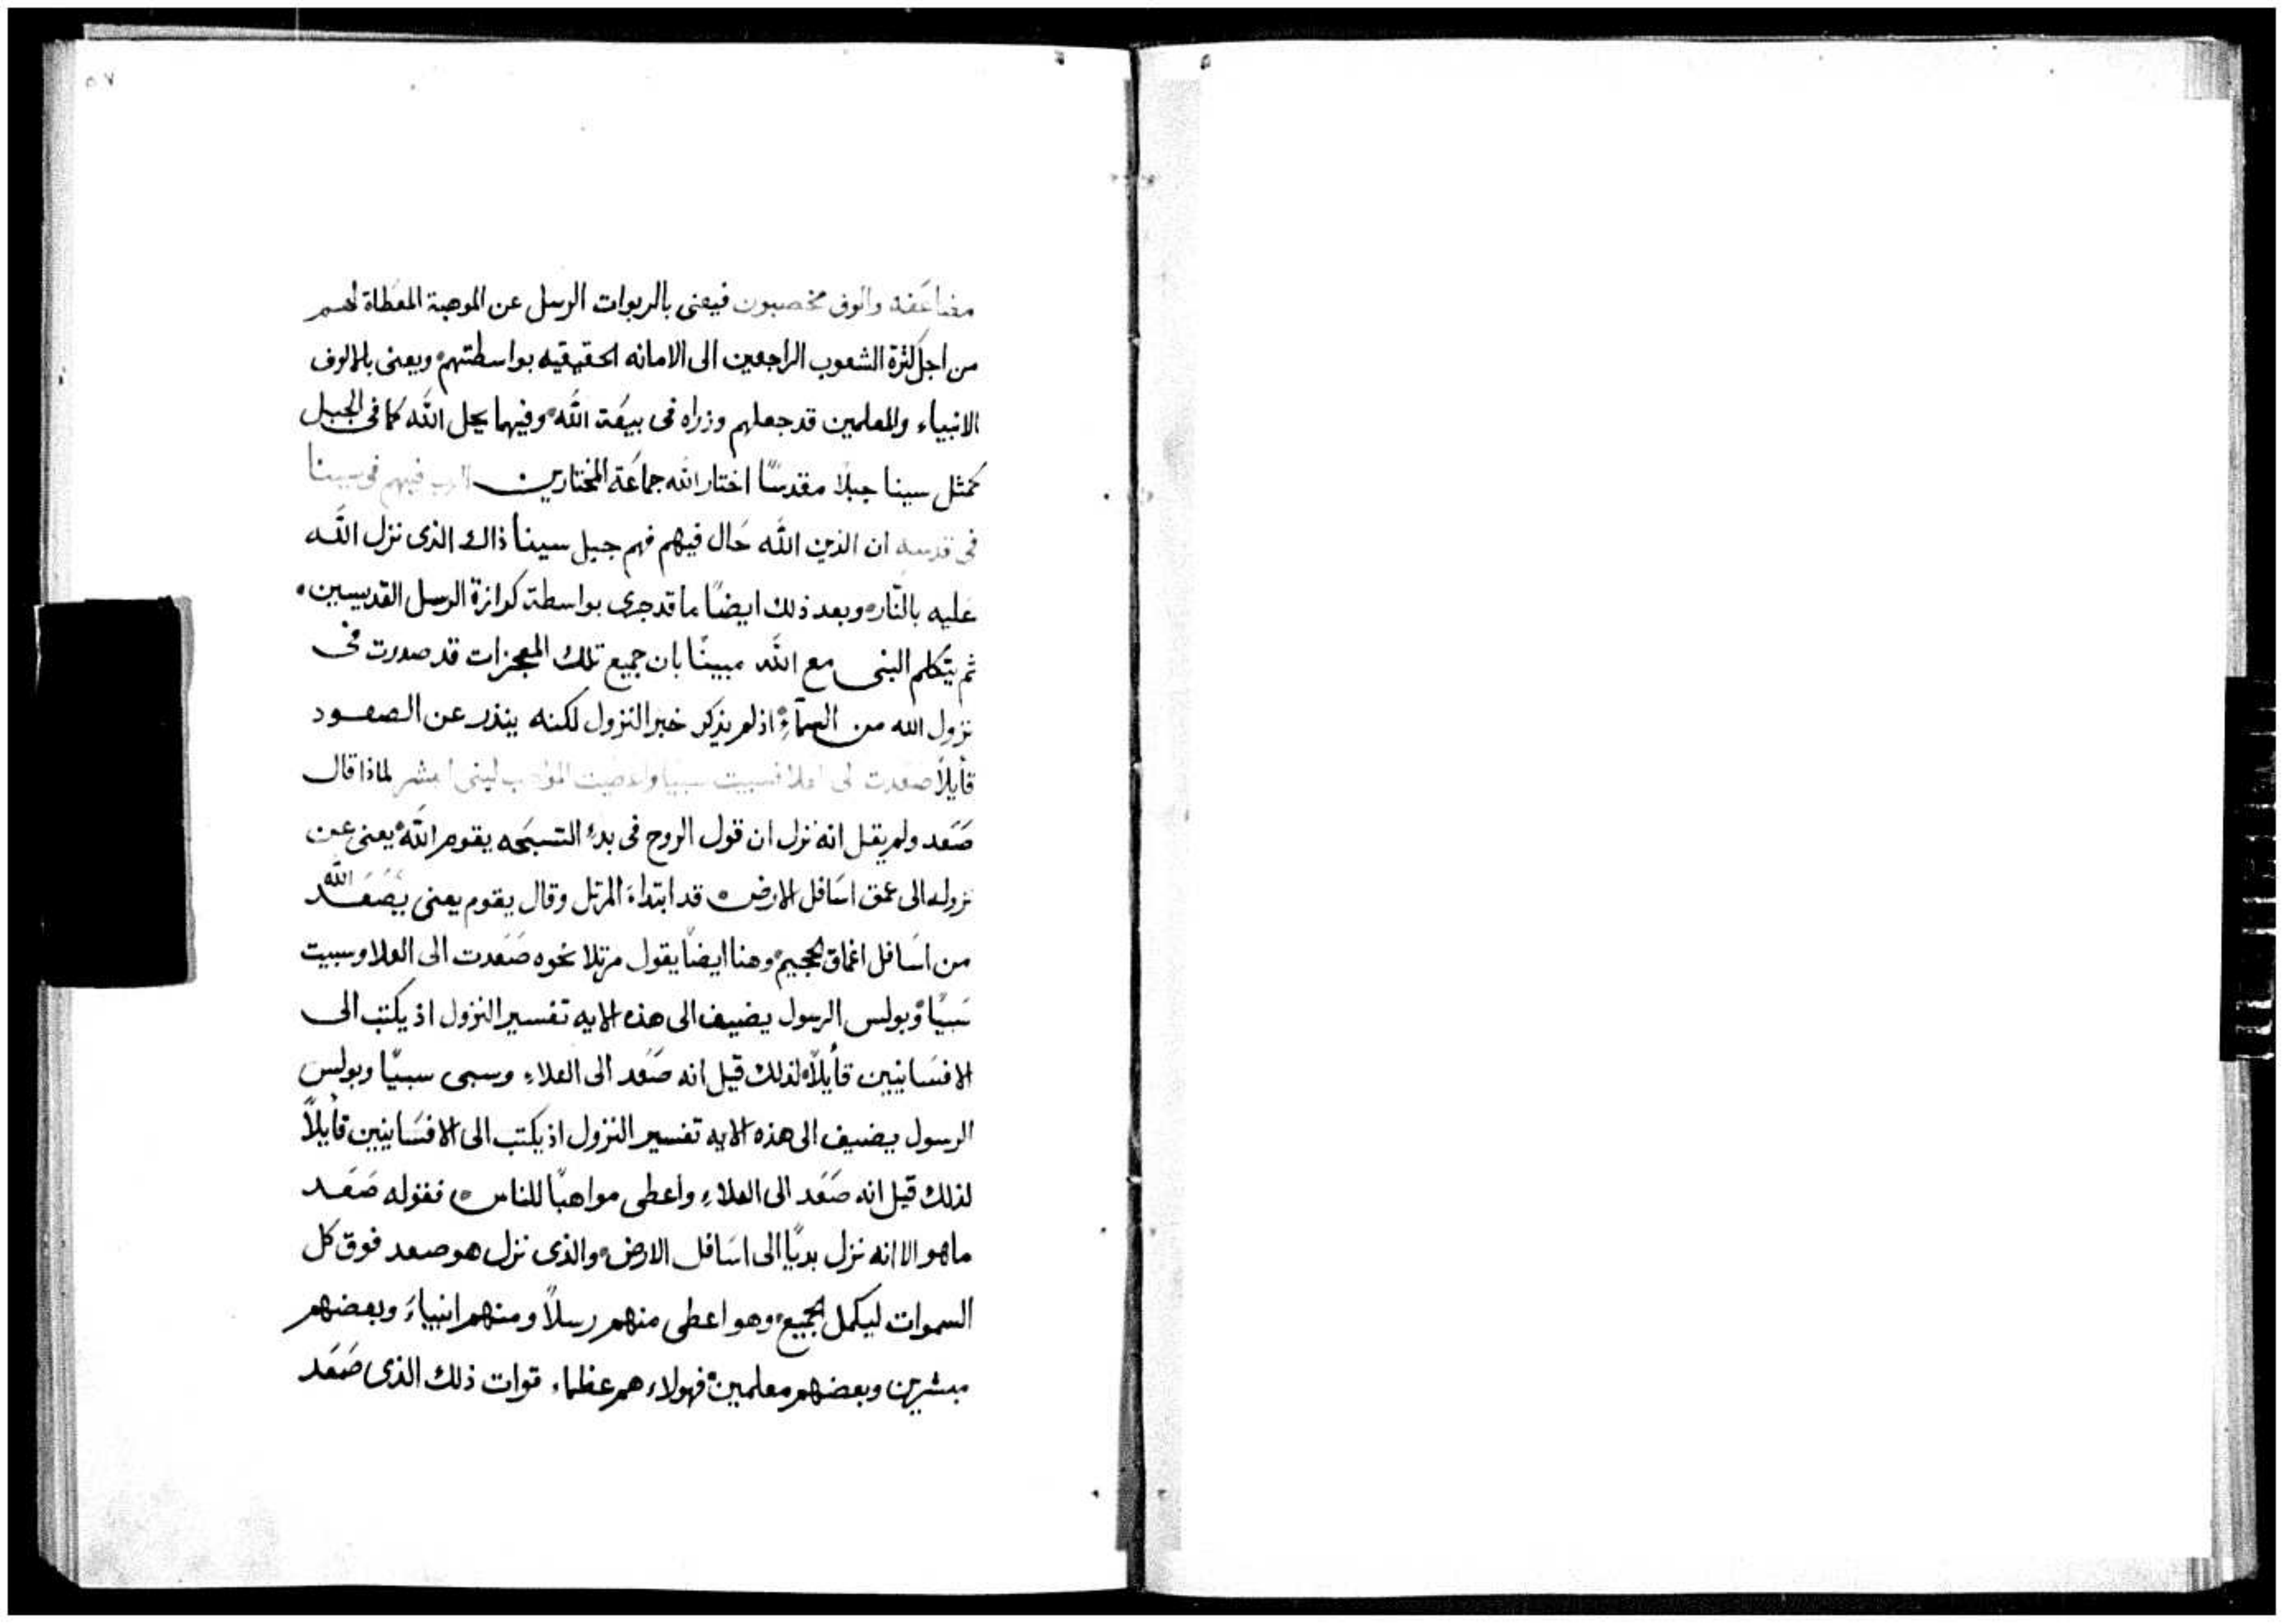 ٥٧
مضاعَفه والوف مخصبون فيعنى بالربوات الرسل عن الموهبة المعَطاة لهم
من اجل كثرة الشعوب الراجعين الى الامانه الحقيقيه بواسطتهم ويعنى بالالوف
الانبياء والمعلمين قد جعلهم وزراه فى بيعَة الله وفيهما يحل الله كما فى الجبل
كمثل سينا جبلاً مقدسًا اختار الله جماعَة المختارين الرب فيهم فى سينا
فى قدسه ان الذين الله حَال فيهم فهم جبل سينا ذاك الذى نزل الله
عَليه بالنّار وبعد ذلك ايضًا ما قد جرى بواسطة كرازة الرسل القديسين
ثم يتكلم النبى مع الله مبينًا بان جميع تلك المعجزات قد صدرت فى
نزول الله من السمآءِ اذ لم يذكر خبر النزول لكنه ينذر عن الصعود
قأيلاً صعَدت الى العلا سبيت سبيًا واعطيت المواهب لبنى البشر لماذا قال
صَعَد ولم يقل انه نزل ان قول الروح فى بدء التسبحَه يقوم الله يعنى عن
نزوله الى عمق اسَافل الارض قد ابتداء المرتل وقال يقوم يعنى يَصَعَد الله
من اسَافل اعماق الجحيم وهنا ايضًا يقول مرتلا نحوه صَعَدت الى العلا وسبيت
سَبيًا وبولس الرسول يضيف الى هذه الايه تفسير النزول اذ يكتب الى
الافسَانيين قأيلاً لذلك قيل انه صَعَد الى العلاءِ وسبى سبيًا وبولس
الرسول يضيف الى هذه الايه تفسير النزول اذ يكتب الى الافسَانيين قأيلاً
لذلك قيل انه صَعَد الى العلاءِ واعطى مواهبًا للناس فقوله صَعَد
ما هو الا انه نزل بديًا الى اسَافل الارض والذى نزل هو صعد فوق كل
السموات ليكمل الجميع وهو اعطى منهم رسلاً ومنهم انبياءَ وبعضهم
مبشرين وبعضهم معلمين فهولاء هم عظماء قوات ذلك الذى صَعَد